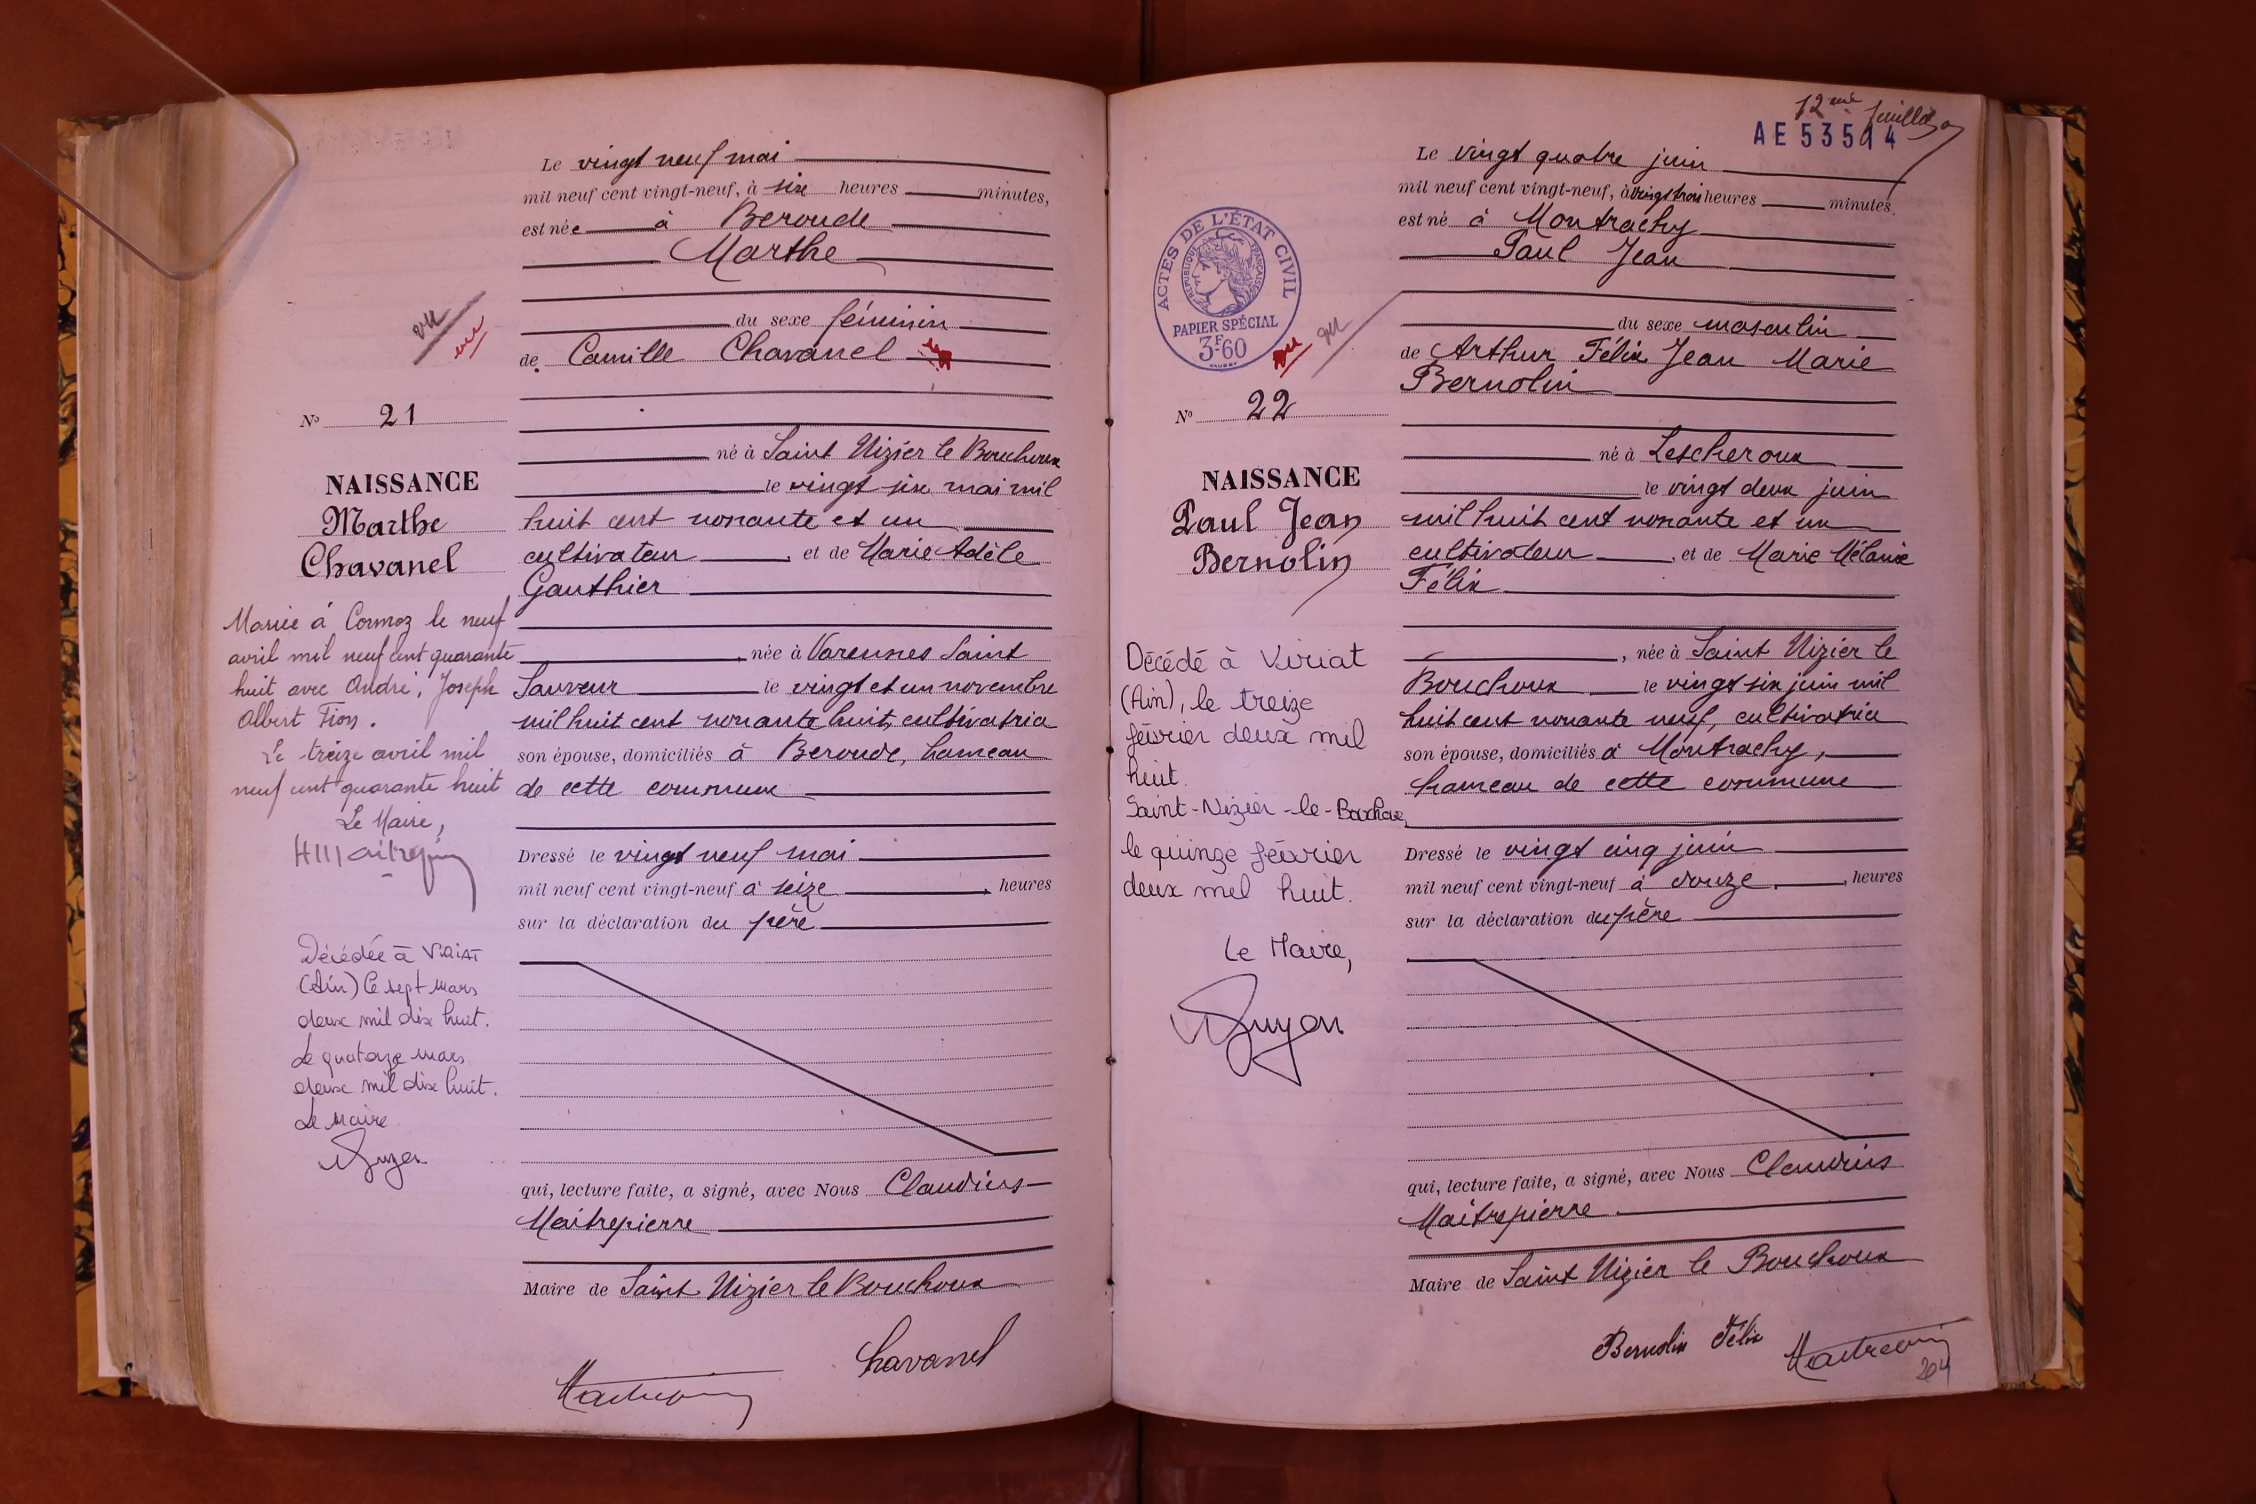 Le vingt neuf mai
mil neuf cent vingt-neuf, à six heures minutes,
est née à Beroude
Marthe
vu
vu
du sexe féminin
de Camille Chavanel
No 21
né à Saint Nizier le Bouchoux
NAISSANCE
Marthe
Chavanel
le vingt six mai mil
huit cent nonante et un
cultivateur, et de Marie Adèle
Gauthier
, née à Varennes Saint
Sauveur le vingt et un novembre
mil huit cent nonante huit, cultivatrice
son épouse, domiciliés à Beroude, hameau
de cette commune
Dressé le vingt neuf mai
mil neuf cent vingt-neuf à seize, heures
sur la déclaration du père
Mariée à Cormoz le neuf
avril mil neuf cent quarante
huit avec André, Joseph
Albert Fion.
Le treize avril mil
neuf cent quarante huit
Le Maire,
Décédée à Viriat
(Ain) le sept mars
deux mil dix huit.
Le quatorze mars
deux mil dix huit.
Le Maire
qui, lecture faite, a signé, avec Nous Claudius
Maitrepierre
Maire de Saint Nizier le Bouchoux
Chavanel
12eme feuillet
AE 53514
Le vingt quatre juin
mil neuf cent vingt-neuf, à vingt trois heures minutes.
est né à Montrachy
Paul Jean
ACTES DE L'ÉTAT CIVIL
RÉPUBLIQUE FRANÇAISE
PAPIER SPÉCIAL
3F60
vu
vu
du sexe masculin
de Arthur Félix Jean Marie
Bernolin
No 22
né à Lescheroux
NAISSANCE
Paul Jean
Bernolin
le vingt deux juin
mil huit cent nonante et un
cultivateur, et de Marie Mélanie
Félix
, née à Saint Nizier le
Bouchoux le vingt six juin mil
huit cent nonante neuf, cultivatrice
son épouse, domiciliés à Montrachy,
hameau de cette commune
Dressé le vingt cinq juin
mil neuf cent vingt-neuf à douze, heures
sur la déclaration du père
Décédé à Viriat
(Ain), le treize
février deux mil
huit.
Saint-Nizier-le-Bouchoux
le quinze février
deux mil huit.
Le Maire,
qui, lecture faite, a signé, avec Nous Claudius
Maitrepierre
Maire de Saint Nizier le Bouchoux
Bernolin Félix
204